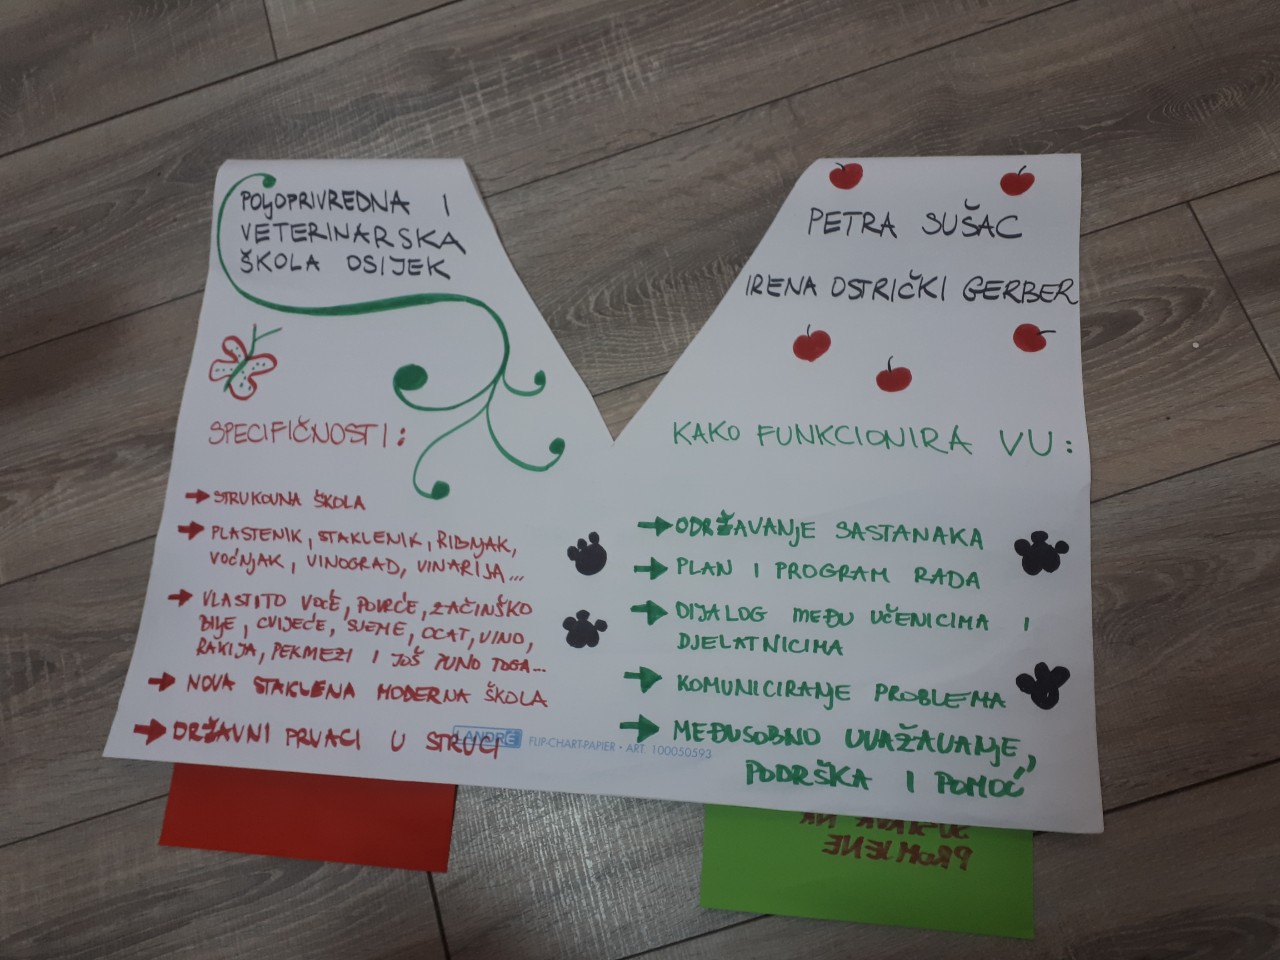 POLJOPRIVREDNA I
VETERINARSKA
ŠKOLA OSIJEK
SPECIFIČNOSTI:
STRUKOVNA ŠKOLA
PLASTENIK, STAKLENIK, RIBNJAK,
VOĆNJAK, VINOGRAD, VINARIJA...
VLASTITO VOĆE, POVRĆE, ZAČINSKO
BILJE, CVIJEĆE, SJEME, OCAT, VINO,
RAKIJA, PEKMEZI I JOŠ PUNO TOGA...
NOVA STAKLENA MODERNA ŠKOLA
DRŽAVNI PRVACI U STRUCI
PETRA SUŠAC
IRENA OSTRIČKI GERBER
KAKO FUNKCIONIRA VU:
ODRŽAVANJE SASTANAKA
PLAN I PROGRAM RADA
DIJALOG MEĐU UČENICIMA I
DJELATNICIMA
KOMUNICIRANJE PROBLEMA
MEĐUSOBNO UVAŽAVANJE,
PODRŠKA I POMOĆ
LANDRÉ FLIP-CHART-PAPIER • ART. 100050593
NA
PROMJENE